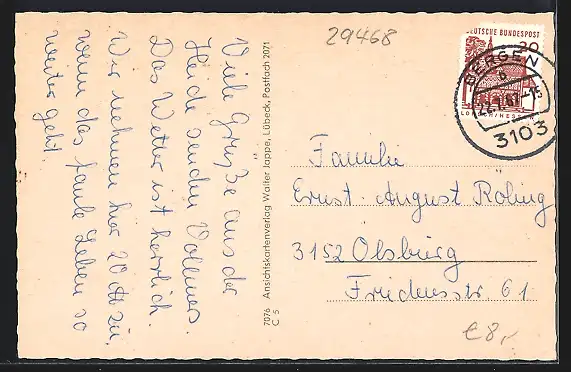 Viele Grüße aus der
Heide senden Vollmers.
Das Wetter ist herrlich.
Wir nehmen hier 20 ℔ zu,
wenn das faule Leben so
weiter geht.
7076 Ansichtskartenverlag Walter Jappe, Lübeck, Postfach 2071
C 5
29468
DEUTSCHE BUNDESPOST
20
LORSCH/HESSEN
BERGEN
b
3103
Familie
Ernst-August Roling
3152 Olsburg
Friedensstr 61
€8,-